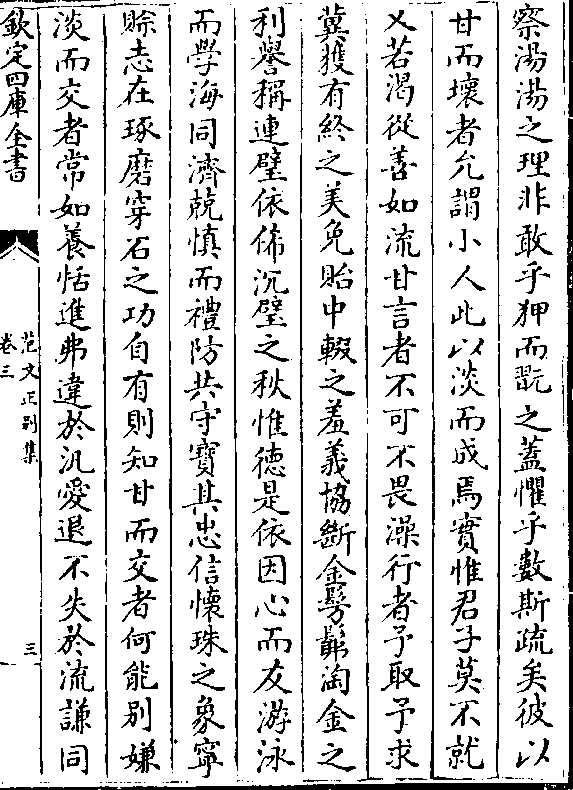 察湯湯之理非敢乎狎而翫之蓋懼乎數斯疏矣彼以
甘而壞者允謂小人此以淡而成焉實惟君子莫不就
乂若渴從善如流甘言者不可不畏澡行者予取予求
冀獲有終之美免貽中輟之羞義協斷金髣髴淘金之
利譽稱連璧依俙沉璧之秋惟德是依因心而友游泳
而學海同濟兢慎而禮防共守寶其忠信懷珠之象寧
賒志在琢磨穿石之功自有則知甘而交者何能別嫌
淡而交者常如養恬進弗違於汎愛退不失於流謙同
欽定四庫全書
范文正别集
卷三
三